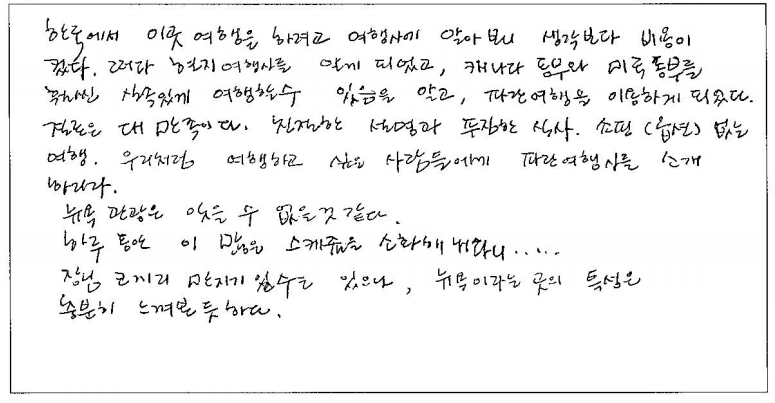 한국에서 이곳 여행을 하려고 여행사에 알아보니 생각보다 비용이
컸다. 그러다 현지여행사를 알게 되었고, 캐나다 동부와 미국동부를
훨씬 실속있게 여행할수 있음을 알고, 파란여행을 이용하게 되었다.
결론은 대 만족이다. 친절한 설명과 푸짐한 식사. 쇼핑 (옵션) 없는
여행. 우리처럼 여행하고 싶은 사람들에게 파란여행사를 소개
하리라.
뉴욕 관광은 잊을 수 없을것 같다.
하루 동안 이 많은 스케쥴을 소화해 내다니.....
장님 코끼리 만지기일수는 있으나, 뉴욕이라는 곳의 특성은
충분히 느껴본 듯하다.